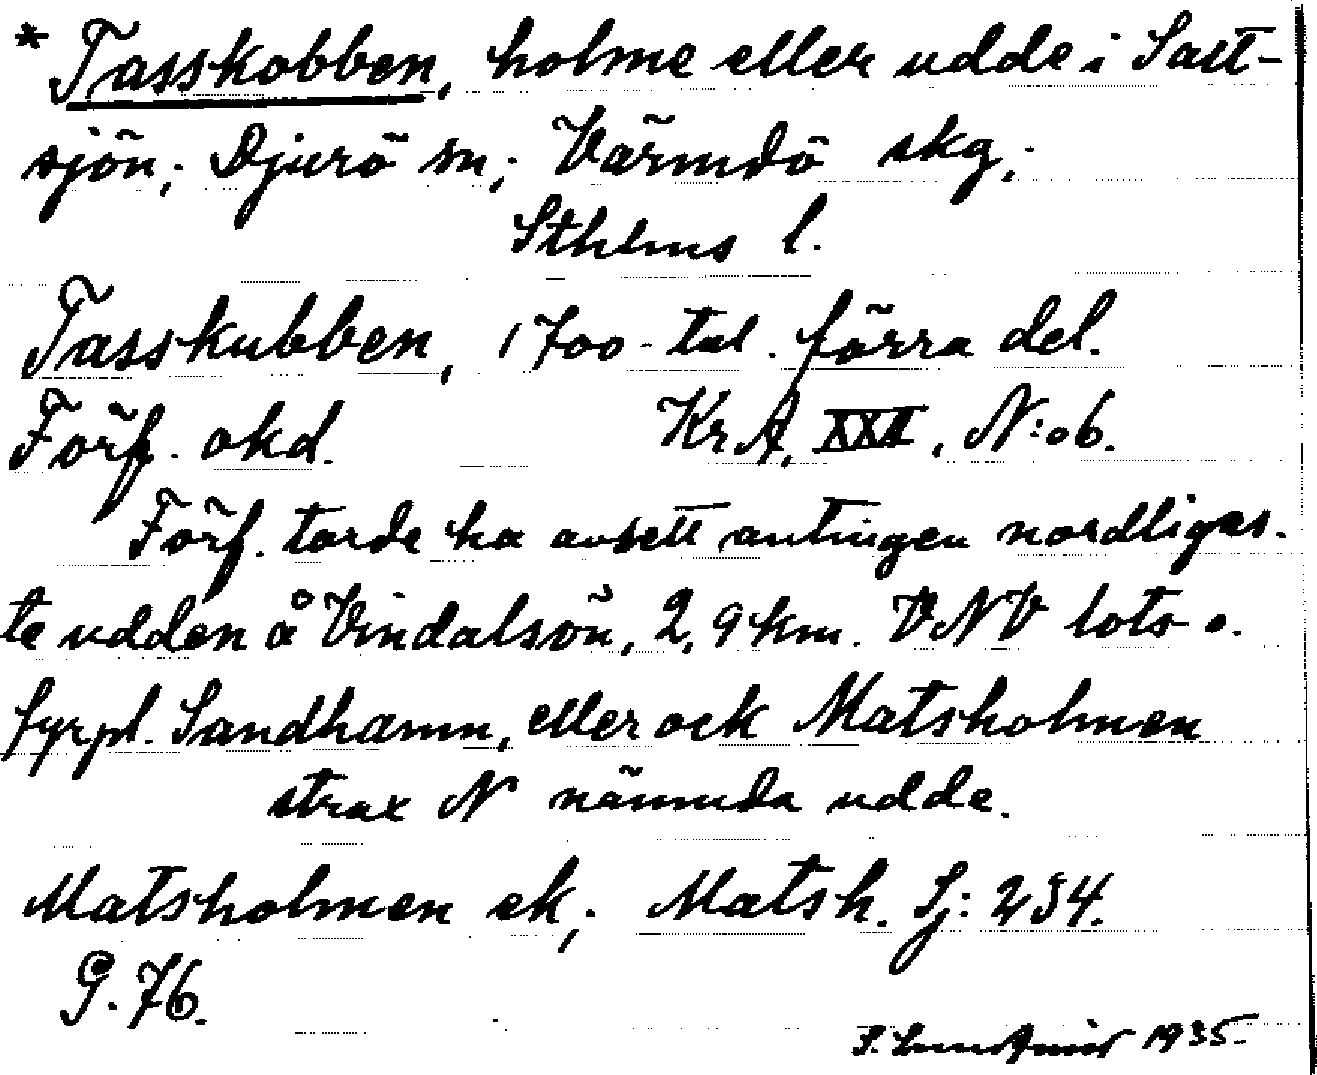 * Tasskobben, holme eller udde i Salt-
sjön; Djurö sn; Värmdö skg;
Sthlms l.
Tasskubben, 1700-tal. förra del.
Förf. okd. KrA, XXII, N:o 6.
Förf. torde ha avsett antingen nordligas-
te udden å Vindalsön, 2,9 km. VNV lots o.
fyrpl. Sandhamn, eller ock Matsholmen
strax N nämnda udde.
Matsholmen ek; Matsh. Sj: 234.
G. 76.
1935.